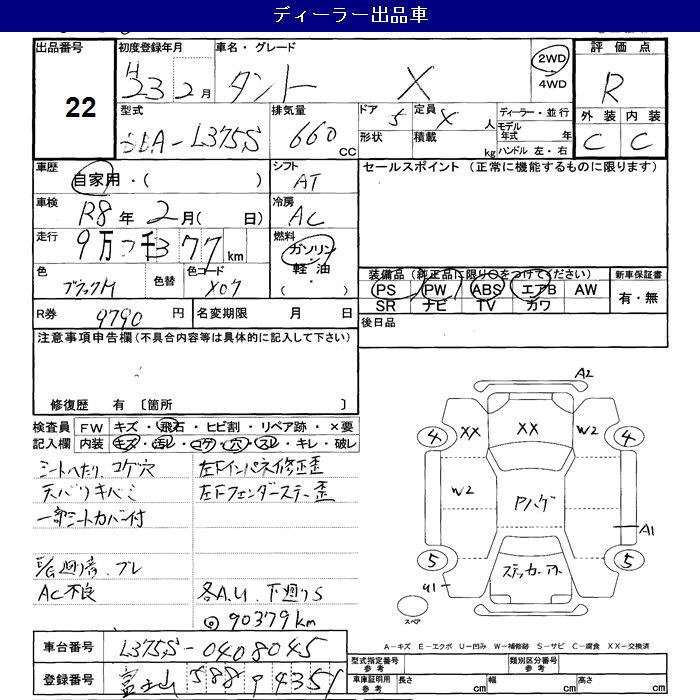 ディーラー出品車
出品番号
22
初度登録年月
H 23年 2月
車名・グレード
タント X
2WD
4WD
評価点
R
外装 内装
C C
型式
DBA-L375S
排気量
660 cc
ドア
5
定員
人
形状
積載
kg
ディーラー・並行
モデル年式 年
ハンドル 左・右
車歴
自家用・( )
シフト
AT
セールスポイント (正常に機能するものに限ります)
車検
R8年 2月( 日)
冷房
AC
走行
9万 377 km
燃料
ガソリン
軽油
( ・ )
色
ブラックM
色替
色コード
X07
装備品 (純正品に限り○をつけてください)
PS PW ABS エアB AW
SR ナビ TV カワ
新車保証書
有・無
R券
9790 円
名変期限 月 日
後日品
注意事項申告欄 (不具合内容等は具体的に記入して下さい)
修復歴 有 〔箇所 〕
検査員 FW キズ・飛石・ヒビ割・リペア跡・×要
記入欄 内装 キズ・汚レ・コゲ・穴・スレ・キレ・破レ
シートヘタリ、コゲ穴
天バリキバミ
一部シートカバー付
AC不良
左Fインパネ修正歪
左Fフェンダーステー歪
各A.U、下廻りS
◎90379km
A2
XX
XX
W2
4
4
W2
Pハゲ
A1
5
5
ステッカーアト
U1
スペア
A-キズ E-エクボ U-凹み W-補修跡 S-サビ C-腐食 XX-交換済
車台番号
L375S-0408045
登録番号
富士山 588 4351
型式指定番号
参考
類別区分番号
参考
車庫証明用
参考
長さ cm
幅 cm
高さ cm